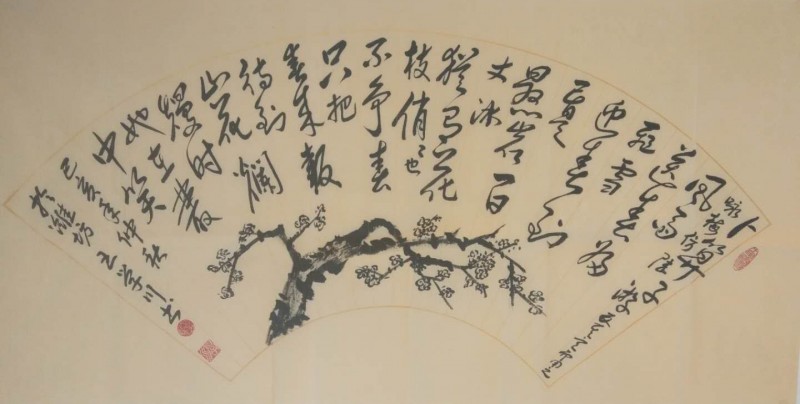 卜算子
咏梅
风雨
飞雪
迎春到
已是
悬崖百
丈冰
犹有花
枝俏俏也
不争春
只把
春来报
待到
山花爛
熳时
她在丛
中笑
己亥年仲秋
於潍坊王学川书